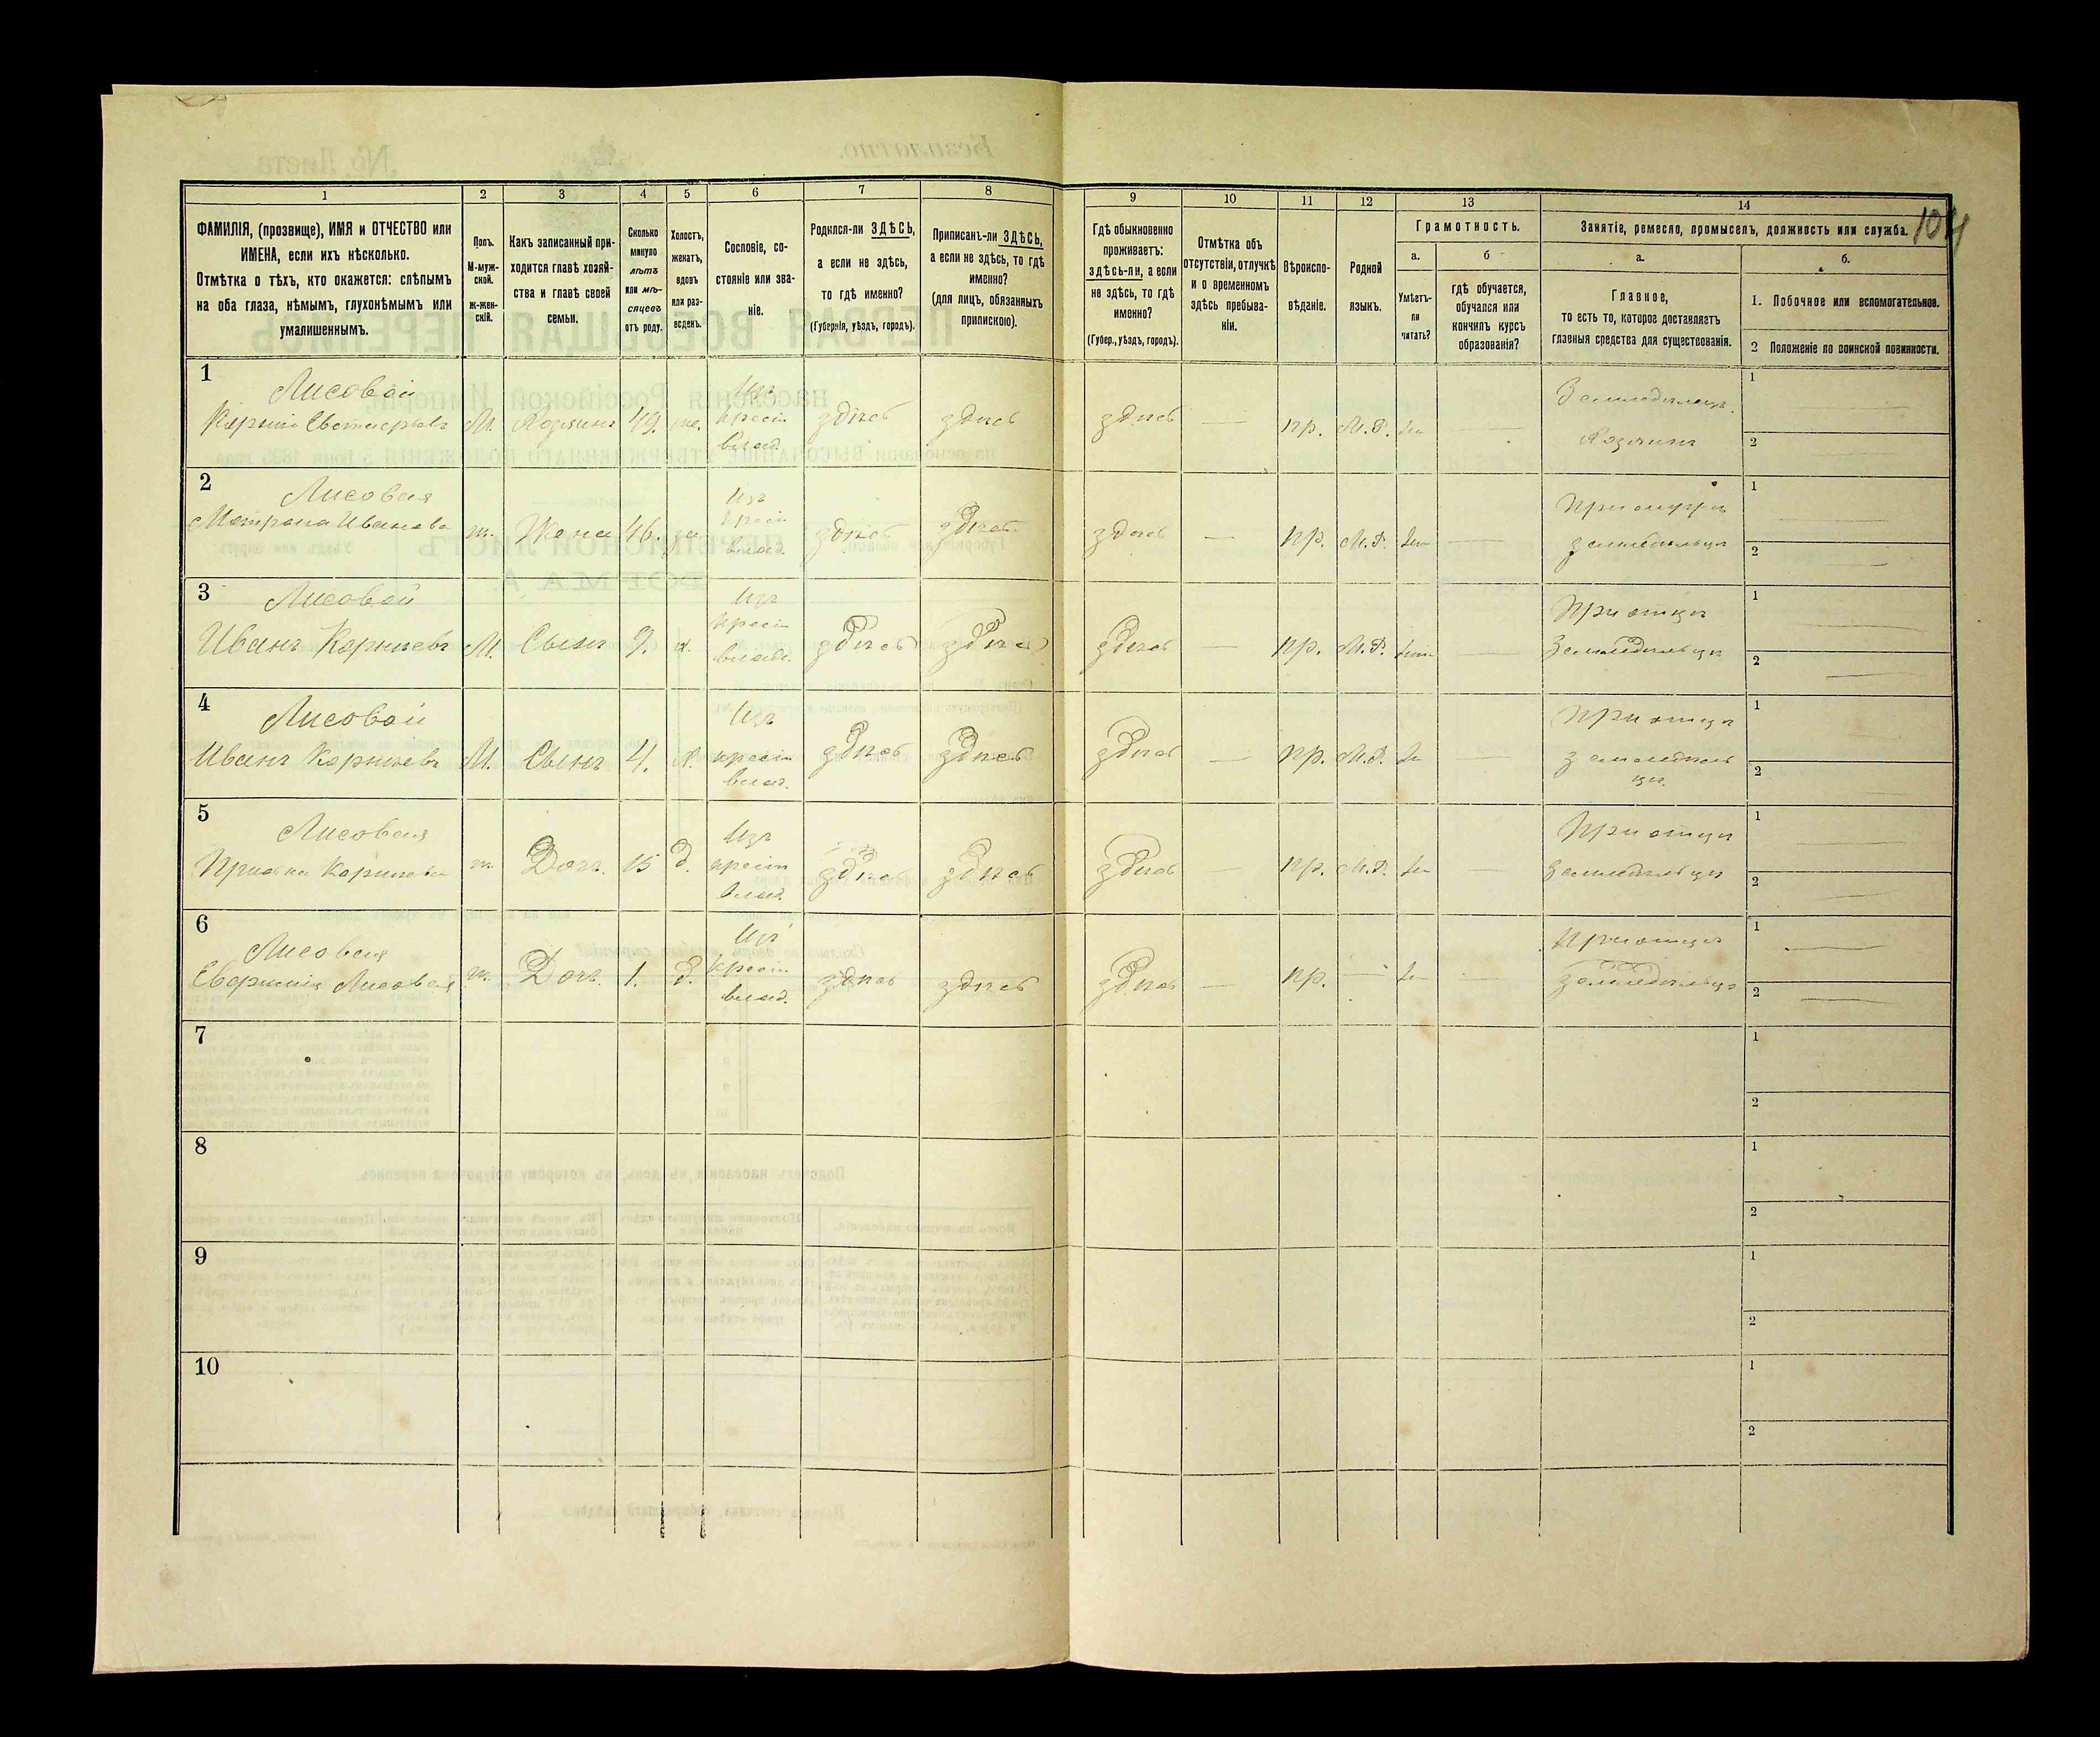 1
2
3
4
5
6
7
8
9
10
11
12
13
14
104
ФАМИЛІЯ, (прозвище), ИМЯ и ОТЧЕСТВО или
ИМЕНА, если ихъ нѣсколько.
Отмѣтка о тѣхъ, кто окажется: слѣпымъ
на оба глаза, нѣмымъ, глухонѣмымъ или
умалишеннымъ.
Полъ.
М-муж-
ской.
ж-жен-
скій.
Какъ записанный при-
ходится главѣ хозяй-
ства и главѣ своей
семьи.
Сколько
минуло
лѣтъ
или мѣ-
сяцевъ
отъ роду.
Холостъ,
женатъ,
вдовъ
или раз-
веденъ.
Сословіе, со-
стояніе или зва-
ніе.
Родился-ли ЗДѢСЬ,
а если не здѣсь,
то гдѣ именно?
(Губернія, уѣздъ, городъ).
Приписанъ-ли ЗДѢСЬ,
а если не здѣсь, то гдѣ
именно?
(для лицъ, обязанныхъ
припискою).
Гдѣ обыкновенно
проживаетъ:
здѣсь-ли, а если
не здѣсь, то гдѣ
именно?
(Губер., уѣздъ, городъ).
Отмѣтка объ
отсутствіи, отлучкѣ
и о временномъ
здѣсь пребыва-
ніи.
Вѣроиспо-
вѣданіе.
Родной
языкъ.
Грамотность.
а.
Умѣетъ-
ли
читать?
б
гдѣ обучается,
обучался или
кончилъ курсъ
образованія?
Занятіе, ремесло, промыселъ, должность или служба.
а.
Главное,
то есть то, которое доставляетъ
главныя средства для существованія.
б.
1. Побочное или вспомогательное.
2 Положеніе по воинской повинности.
1
Лисовой
М. Хозяинъ 49. же.
Изъ
крест
влад.
здѣсь здѣсь здѣсь — пр. М.Р. —
Земледѣлецъ.
Хозяинъ
1
2
2
Лисовая
Матрона Иванова ж. Жена 46. за
Изъ
крест
влад.
здѣсь здѣсь здѣсь — пр. М.Р. —
При
земледѣльца
1
2
3
Лисовой
Иванъ Корнѣевъ М. Сынъ 9. х.
Изъ
крест
влад.
здѣсь здѣсь здѣсь — пр. М.Р. —
При отцѣ
Земледѣльцѣ
1
2
4
Лисовой
Иванъ Корнѣевъ М. Сынъ 4. х.
Изъ
крест
влад.
здѣсь здѣсь здѣсь — пр. М.Р. —
При отцѣ
земледѣль
цѣ.
1
2
5
Лисовая
ж. Дочь. 15 д.
Изъ
крест
влад.
здѣсь здѣсь здѣсь — пр. М.Р. —
При отцѣ
Земледѣльцѣ
1
2
6
Лисовая
Лисовая ж. Дочь. 1. д.
Изъ
крест
влад.
здѣсь здѣсь здѣсь — пр. — —
При отцѣ
Земледѣльцѣ
1
2
7
1
2
8
1
2
9
1
2
10
1
2